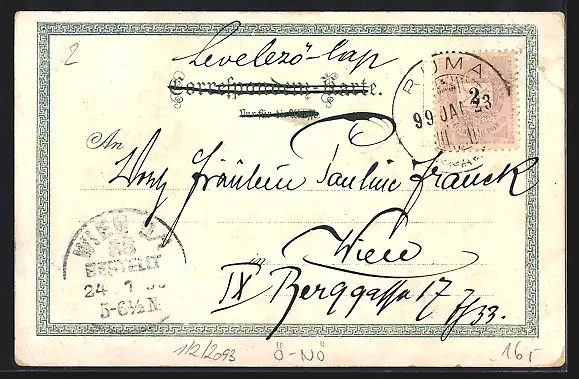 2
Levelező-lap
Correspondenz-Karte.
Nur für die
RUMA
99 JAN 23
2
An
Wohl Fräulein Pauline Franck
in Wien
IX Berggasse 17
33.
WIEN
BESTELLT
24 1
5-6½N
1/2/2093
Ö-NÖ
16,-